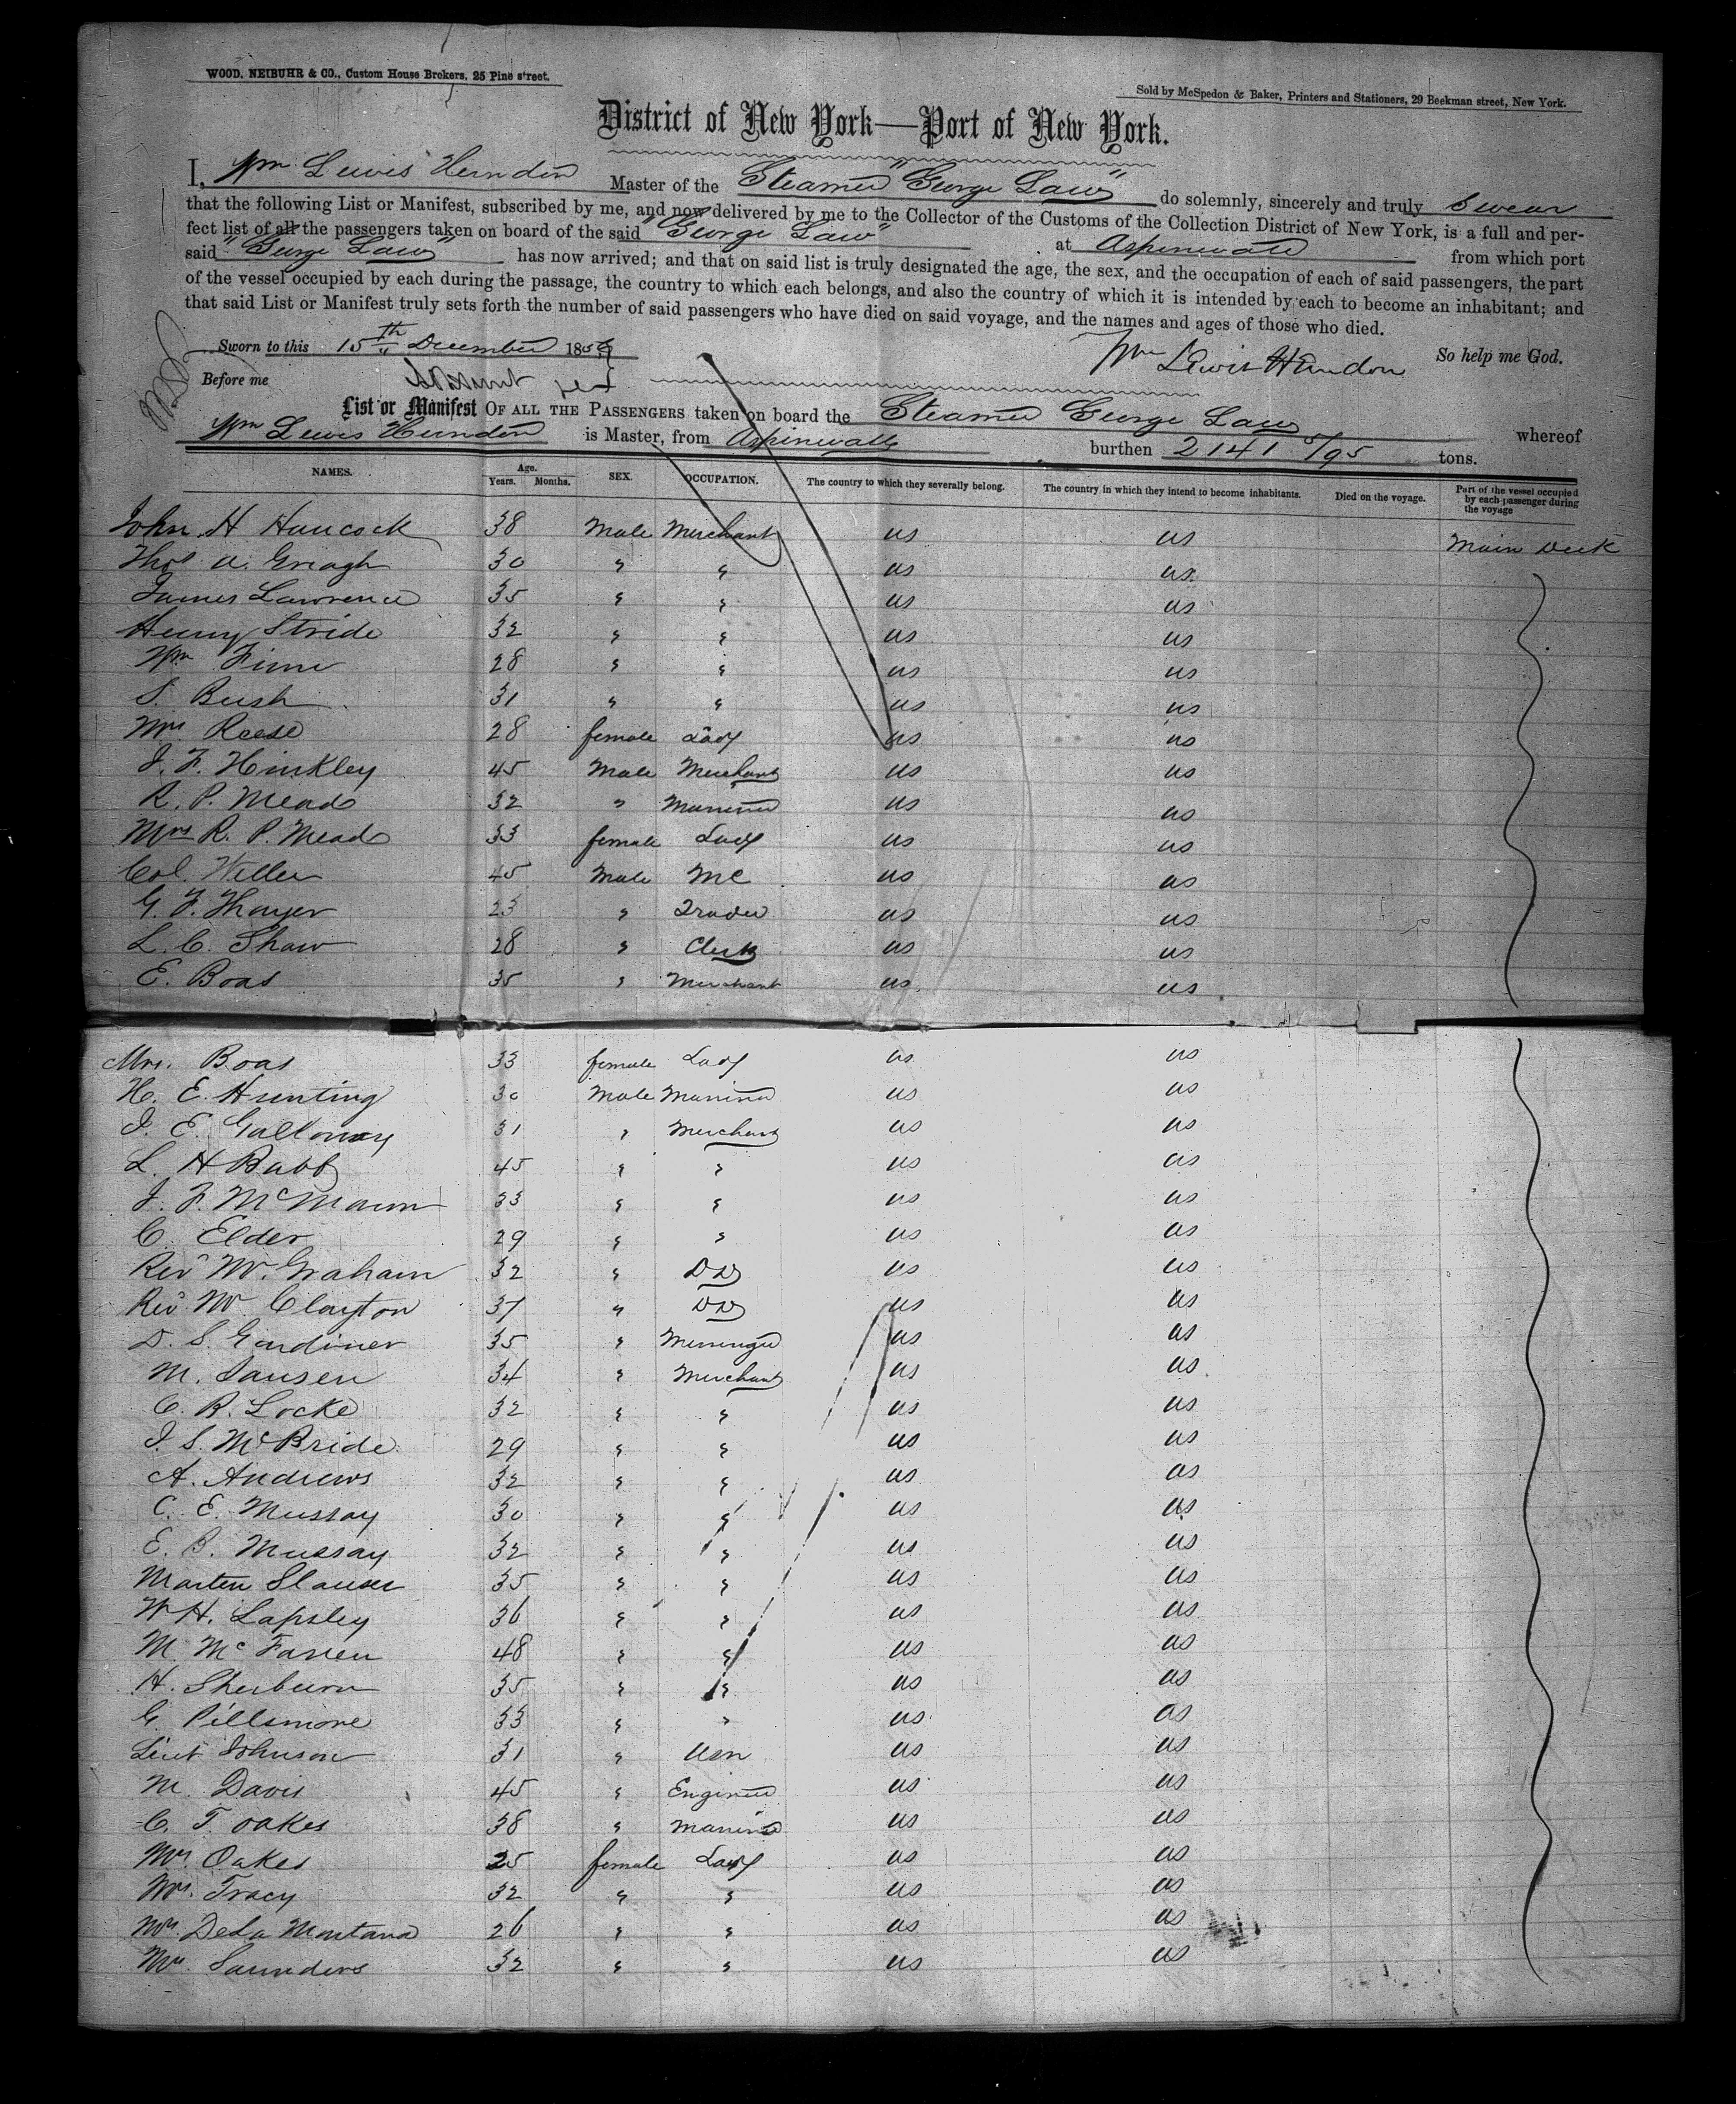 WOOD, NEIBUHR & CO., Custom House Brokers, 25 Pine street.
Sold by McSpedon & Baker, Printers and Stationers, 29 Beekman street, New York.
District of New York—Port of New York.
I, Wm Lewis Herndon Master of the Steamer "George Law" do solemnly, sincerely and truly swear
that the following List or Manifest, subscribed by me, and now delivered by me to the Collector of the Customs of the Collection District of New York, is a full and per-
fect list of all the passengers taken on board of the said "George Law" at Aspinwall from which port
said "George Law" has now arrived; and that on said list is truly designated the age, the sex, and the occupation of each of said passengers, the part
of the vessel occupied by each during the passage, the country to which each belongs, and also the country of which it is intended by each to become an inhabitant; and
that said List or Manifest truly sets forth the number of said passengers who have died on said voyage, and the names and ages of those who died.
Sworn to this 15th December 185
So help me God.
Wm Lewis Herndon
Before me
List or Manifest OF ALL THE PASSENGERS taken on board the Steamer George Law whereof
Wm Lewis Herndon is Master, from Aspinwall burthen 2141 5/95 tons.
NAMES. Age. Years. Months. SEX. OCCUPATION. The country to which they severally belong. The country in which they intend to become inhabitants. Died on the voyage. Part of the vessel occupied by each passenger during the voyage
John H Hancock 38 Male Merchant us us Main Deck
Thos A. Greagh 30 " " us us
James Lawrence 35 " " us us
Henry Stride 32 " " us us
Wm 28 " " us us
S. Bush 31 " " us us
Mrs Reese 28 female Lady us us
J. F. Hinkley 45 Male Merchant us us
R. P. Mead 32 " Mariner us us
Mrs R. P. Mead 33 female Lady us us
Col. Weller 45 Male MC us us
G. F. Thayer 23 " Trader us us
L. C. Shaw 28 " Clerk us us
E. Boas 35 " Merchant us us
Mrs. Boas 33 female Lady us us
H. E. Hunting 30 Male Mariner us us
J. E. Galloway 31 " Merchant us us
L. H Babb 45 " " us us
J. F. McMaun 33 " " us us
C. Elder 29 " " us us
Revd Mr. Graham 32 " DD us us
Revd Mr Clayton 37 " DD us us
D. S. Gardiner 35 " Messenger us us
M. Jansen 34 " Merchant us us
C. R. Locke 32 " " us us
J. S. McBride 29 " " us us
A. Andrews 32 " " us us
C. E. Mussay 30 " " us us
E. B. Mussay 32 " " us us
Marten Slauser 35 " " us us
W H. Lapsley 36 " " us us
M. McFarren 48 " " us us
H. Sherburn 35 " " us us
G. Pillsmore 33 " " us us
Lieut Johnson 31 " USN us us
M. Davis 45 " Engineer us us
C. T. Oakes 38 " Mariner us us
Mrs Oakes 25 female Lady us us
Mrs. Tracy 32 " " us us
Mrs. DeLa Montana 26 " " us us
Mrs Saunders 32 " " us us